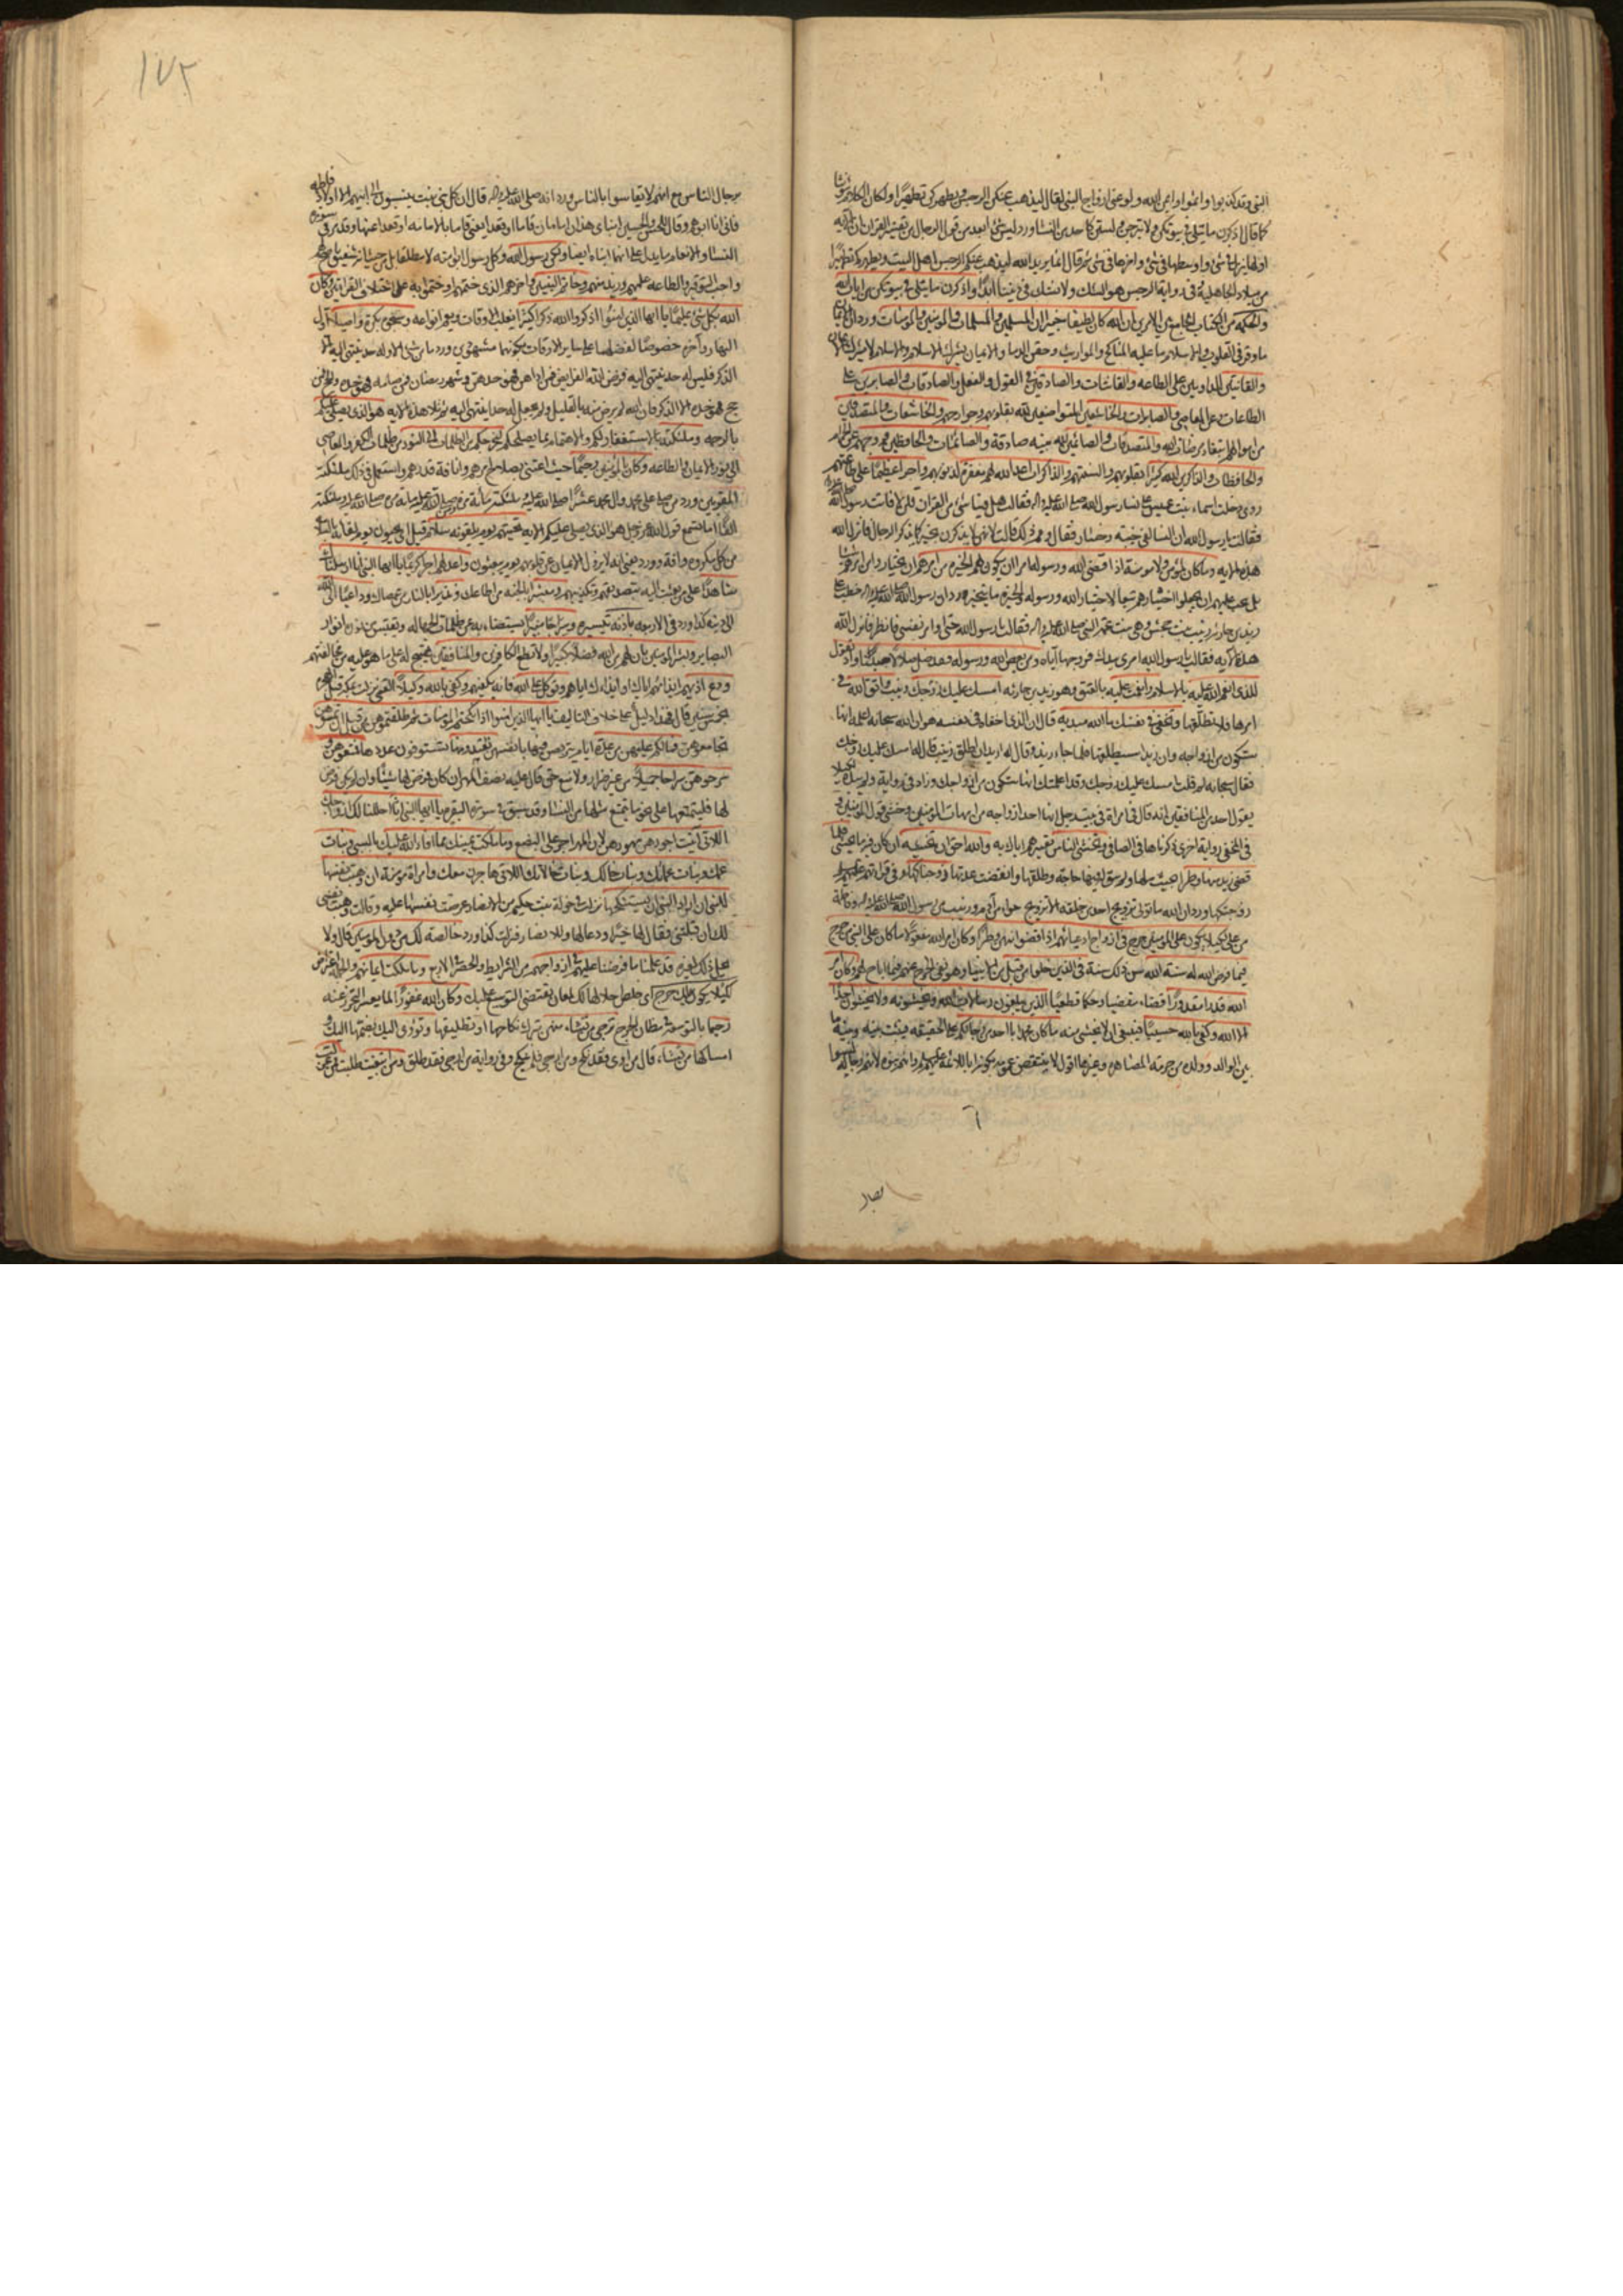 النبى وقد كذبوا واثموا وايم الله ولو عنى ازواج النبى لقال ليذهب عنكن الرجس ويطهركن تطهيرا ولكان الكلام مؤنثا
كما قال اذكرن ما يتلى فى بيوتكن ولا تبرجن ولستن كاحد من النساء وورد ليس شئ ابعد من عقول الرجال من تفسير القران ان الآيه
اولها ينزل فى شئ واوسطها فى شئ واخرها فى شئ ثم قال انما يريد الله ليذهب عنكم الرجس اهل البيت ويطهركم تطهيرا
من ميلاد الجاهلية وفى رواية الرجس هو الشك ولا نشك فى ديننا ابدا واذكرن ما يتلى فى بيوتكن من ايات الله
والحكمة من الكتاب الجامع بين الامرين ان الله كان لطيفا خبيرا ان المسلمين والمسلمات والمؤمنين والمؤمنات وورد ان الايمان
ما وقر فى القلوب والاسلام ما عليه المناكح والمواريث وحقن الدما والايمان يشرك الاسلام والاسلام لا يشرك الايمان
والقانتين المداومين على الطاعه والقانتات والصادقين فى القول والفعل والصادقات والصابرين على
الطاعات وعن المعاصى والصابرات والخاشعين المتواضعين لله بقلوبهم وجوارحهم والخاشعات والمتصدقين
من اموالهم ابتغاء مرضات الله والمتصدقات والصائمين لله بنيه صادقة والصائمات والحافظين فروجهم عن الحرام
والحافظات والذاكرين الله كثيرا بقلوبهم والسنتهم والذاكرات اعد الله لهم مغفرة لذنوبهم واجرا عظيما على طاعتهم
روى دخلت اسماء بنت عميس على نساء رسول الله صلى الله عليه واله فقالت هل فينا شئ من القران قلن لا فاتت رسول الله
فقالت يا رسول الله ان النسا لفى خيبة وخسار فقال ومم ذلك قالت لانهن لا يذكرن بخير كما يذكر الرجال فانزل الله
هذه الايه وما كان لمؤمن ولا مومنة اذا قضى الله ورسوله امرا ان يكون لهم الخيره من امرهم ان يختاروا من امرهم شيئا
بل يجب عليهم ان يجعلوا اختيارهم تبعا لاختيار الله ورسوله والخيرة ما يتخير ورد ان رسول الله صلى الله عليه واله خطب على
زيد بن حارثه زينب بنت جحش وهى بنت عمة النبى صلى الله عليه واله فقالت يا رسول الله حتى اوامر نفسى فانظر فانزل الله
هذه الآيه فقالت يا رسول الله امرى بيدك فزوجها اياه ومن يعص الله ورسوله فقد ضل ضلالا مبينا واذ تقول
للذى انعم الله عليه بالاسلام وانعمت عليه بالعتق وهو زيد بن حارثه امسك عليك زوجك زينب واتق الله فى
امرها فلا تطلقها وتخفى فى نفسك ما الله مبديه قال ان الذى اخفاه فى نفسه هو ان الله سبحانه اعلمه انها
ستكون من ازواجه وان زيدا سيطلقها فلما جاء زيد وقال له اريد ان اطلق زينب قال له امسك عليك زوجك
فقال سبحانه لم قلت امسك عليك زوجك وقد اعلمتك انها ستكون من ازواجك وزاد فى رواية
يقول احد من المنافقين انه قال فى امراة فى بيت رجل انها احد ازواجه من امهات المؤمنين وخشى قول المنافقين
فى المخفى رواية اخرى ذكرناها فى الصافى وتخشى الناس تعييرهم اياك به والله احق ان تخشيه ان كان فيه ما يخشى فلما
قضى زيد منها وطرا بحيث ملها ولم يبق له فيها حاجه وطلقها وانقضت عدتها زوجناكها وفى قراءتهم عليهم السلام
زوجتكها وورد ان الله ما تولى تزويج احد من خلقه الا تزويج حوا من آدم وزينب من رسول الله صلى الله عليه واله وفاطمة
من على لكيلا يكون على المؤمنين حرج فى ازواج ادعيائهم اذا قضوا منهن وطرا وكان امر الله مفعولا ما كان على النبى من حرج
فيما فرض الله له سنة الله سن ذلك سنة فى الذين خلوا من قبل من الانبياء وهو نفى الحرج عنهم فيما اباح لهم وكان امر
الله قدرا مقدورا قضاء مقضيا وحكما قطعيا الذين يبلغون رسالات الله ويخشونه ولا يخشون احدا
الا الله وكفى بالله حسيبا فينبغى ان لا يخشى منه ما كان محمد ابا احد من رجالكم على الحقيقه فيثبت بينه وبينه ما
بين الوالد وولده من حرمة المصاهره وغيرها اقول لا ينتقض عمومه بكونه ابا للائمة عليهم السلام وانهم رجاله ليسوا
نصار
١٧٢
من رجال الناس مع انهم لا يقاسوا بالناس ورد انه صلى الله عليه واله قال ان كل بنى بنت ينسبون الى ابيهم الا اولاد فاطمه
فانى انا ابوهم وقال للحسن والحسين ابناى هذان امامان قاما او قعدا يعنى قاما بالامامه او قعدا عنها وقد مر فى سورة
النسا والانعام ما يدل على انهما ابناه ايضا ولكن رسول الله وكل رسول ابو امته لا مطلقا بل من حيث انه شفيق ناصح لهم
واجب التوقير والطاعه عليهم وزيد منهم وخاتم النبيين واخرهم الذى ختمهم او ختموا به على اختلاف القراءتين وكان
الله بكل شئ عليما يا ايها الذين امنوا اذكروا الله ذكرا كثيرا يغلب الاوقات ويعم انواعه وسبحوه بكرة واصيلا اول
النهار وآخره خصوصا لفضلهما على ساير الاوقات لكونهما مشهودين وورد ما من شئ الا وله حد ينتهى اليه الا
الذكر فليس له حد ينتهى اليه فرض الله الفرايض فمن اداهن فهو حدهن وشهر رمضان فمن صامه فهو حده والحج فمن
حج فهو حده الا الذكر فان الله لم يرض منه بالقليل ولم يجعل له حدا ينتهى اليه ثم تلا هذه الآيه هو الذى يصلى عليكم
بالرحمه وملئكته بالاستغفار لكم والاهتمام بما يصلحكم ليخرجكم من الظلمات الى النور من ظلمات الكفر والمعاصى
الى نور الايمان والطاعه وكان بالمؤمنين رحيما حيث اعتنى بصلاح امرهم وانافة قدرهم واستعمل فى ذلك ملئكته
المقربين وورد من صلى على محمد وال محمد عشرا صلى الله عليه وملئكته مائة مرة ومن صلى مائة مرة صلى الله عليه وملئكته
الفا اما تسمع قول الله عز وجل هو الذى يصلى عليكم الايه تحيتهم يوم يلقونه سلام قيل اى يحيون يوم لقائه بالسلامة
من كل مكروه وافة وورد يعنى انه لا يزول الايمان عن قلوبهم يوم يبعثون واعد لهم اجرا كريما يا ايها النبى انا ارسلناك
شاهدا على من بعثت اليه بتصديقهم وتكذيبهم ومبشرا بالجنه من اطاعك ونذيرا بالنار من عصاك وداعيا الى الله
الى دينه كذا ورد فى الاربعه باذنه بتيسيره وسراجا منيرا يستضاء به عن ظلمات الجهاله وتقتبس من نوره انوار
البصاير وبشر المومنين بان لهم من الله فضلا كبيرا ولا تطع الكافرين والمنافقين تهييج له على ما هو عليه من مخالفتهم
ودع اذيهم ايذائهم اياك او ايذائك اياهم وتوكل على الله فانه يكفيهم وكفى بالله وكيلا القمى نزلت بمكه قبل الهجره
بخمس سنين قال فهذا دليل على خلاف التاليف يا ايها الذين امنوا اذا نكحتم المؤمنات ثم طلقتموهن من قبل ان تمسوهن
تجامعوهن فما لكم عليهن من عدة ايام يتربصن فيها بانفسهن تعتدونها تستوفون عددها فمتعوهن و
سرحوهن سراحا جميلا من غير ضرار ولا منع حق قال عليه نصف المهر ان كان فرض لها شيئا وان لم يكن فرض
لها فليمتعها على نحو ما يتمتع مثلها من النساء وقد سبق فى سورة البقرة يا ايها النبى انا احللنا لك ازواجك
اللاتى آتيت اجورهن مهورهن لان المهر اجر على البضع وما ملكت يمينك مما افاء الله عليك بالسبى وبنات
عمك وبنات عماتك وبنات خالك وبنات خالاتك اللاتى هاجرن معك وامراة مؤمنة ان وهبت نفسها
للنبى ان اراد النبى ان يستنكحها نزلت فى خولة بنت حكيم من الانصار عرضت نفسها عليه وقالت وهبت نفسى
لك ان قبلتنى فقال لها خيرا ودعا لها وللانصار فنزلت كذا ورد خالصة لك من دون المؤمنين قال ولا
يحل ذلك لغيره قد علمنا ما فرضنا عليهم فى ازواجهم من الشرايط والحصر فى الاربع وما ملكت ايمانهم
لكيلا يكون عليك حرج اى خلص حلالها لك لمعان يقتضى التوسع عليك وكان الله غفورا لما يعسر التحرز عنه
رحيما بالتوسعة فى مظان الحرج ترجى من تشاء منهن تترك نكاحها او تطليقها وتؤوى اليك بضمها اليك و
امساكها من تشاء قال من اوى فقد نكح ومن ارجى فلم ينكح وفى رواية من ارجى فقد طلق ومن ابتغيت طلبت ممن عزلت